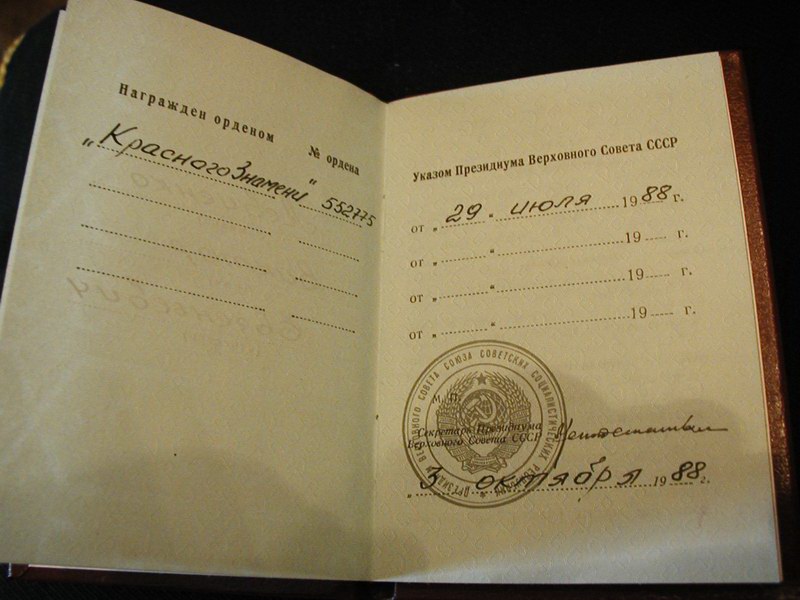 Награжден орденом № ордена
„Красного Знамени“ 552775
Указом Президиума Верховного Совета СССР
от „29“ июля 1988 г.
от „ “ 19 г.
от „ “ 19 г.
от „ “ 19 г.
М. П.
Секретарь Президиума
Верховного Совета СССР
„3 октября 1988 г.
ПРЕЗИДИУМ ВЕРХОВНОГО СОВЕТА СОЮЗА СОВЕТСКИХ СОЦИАЛИСТИЧЕСКИХ